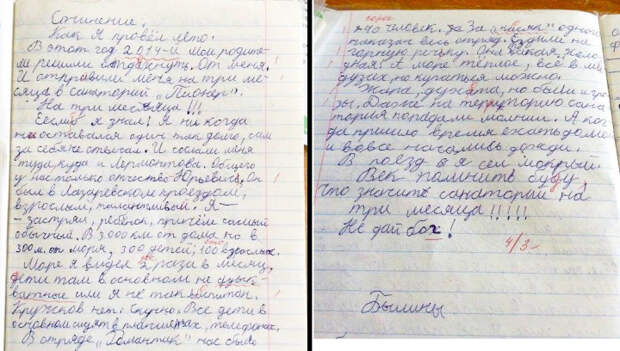 Сочинение.
Как я провёл лето.
В этот год 2014-й мои родите-
ли решили отдохнуть. От меня!
И отправили меня на три ме-
сяца в санаторий "Пионер".
На три месяца!!!
Если б я знал! Я ни когда
не оставался один так долго, сам
за себя не отвечал. И сослали меня
туда, куда и Лермонтова. Общего
у нас только отчество Юрьевич. Он
был в Лазаревском проездом,
взрослым, талантливый. Я-
- застрял, ребёнок, причём самый
обычный. В 3000 км от дома но в
300 м. от моря, 300 детей, 100 взрослых.
Море я видел 2 раза в месяц,
дети там в основном не
или я не так воспитан.
Кружков нет. Скучно. Все дети в
основном сидят в планшетах, телефонах.
В отряде "Романтик" нас было
≈40 человек. За "косяки" одного
наказан весь отряд. Ездили на
горную речку. Она мелкая, холо-
дная! А море тёплое, всё в ме-
дузах, но купаться можно.
Жара, духота, но были и гро-
зы. Даже на територию сана-
тория попадали молнии. А ког-
да пришло время ехать домой
и вовсе начались дожди.
В поезд я сел мокрый
Век помнить буду,
что значить санаторий на
три месяца!!!!!
Не дай бог!
4/3-
Былины